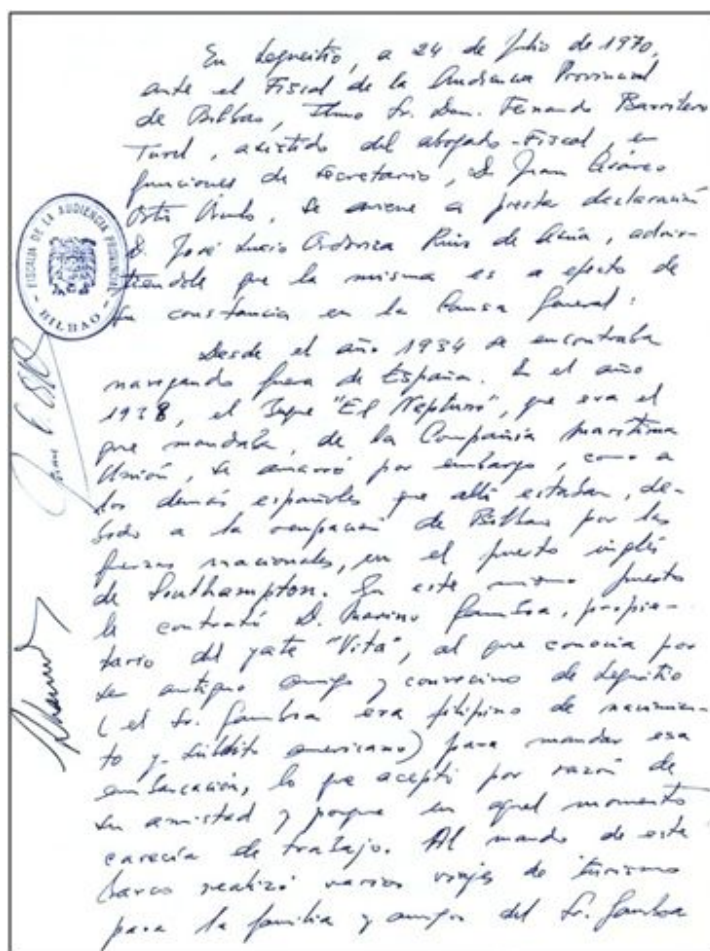 En Lequeitio, a 24 de Julio de 1970,
ante el Fiscal de la Audiencia Provincial
de Bilbao, Ilmo Sr. Don. Fernando Barrilero
Turel, asistido del abogado-Fiscal, en
funciones de Secretario, D. Juan Álvarez
Ortiz, se aviene a prestar declaración
D. José Lucio Ordorica Ruiz de, advir-
tiendole que la misma es a efecto de
su constancia en la Causa General:
FISCALIA DE LA AUDIENCIA PROVINCIAL
- BILBAO -
Desde el año 1934 se encontraba
navegando fuera de España. En el año
1938, el Buque "El Neptuno", que era el
que mandaba, de la Compañia maritima
Unión, se amarró por embargo, como a
los demás españoles que alli estaban, de-
bido a la ocupación de Bilbao por las
fuerzas nacionales, en el puerto inglés
de Southampton. En este mismo puerto
le contrató D. Marino Gamboa, propie-
tario del yate "Vita", al que conocia por
ser antiguo amigo y convecino de Lequeitio
(el Sr. Gamboa era filipino de nacimien-
to y súbdito americano) para mandar esa
embarcación, lo que aceptó por razón de
su amistad y porque en aquel momento
carecia de trabajo. Al mando de este
barco realizó varios viajes de turismo
para la familia y amigos del Sr. Gamboa